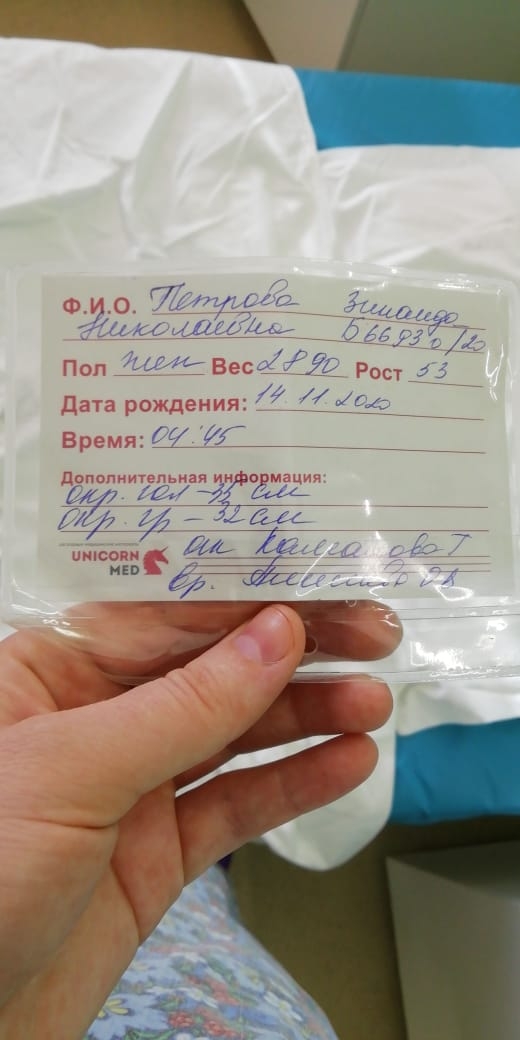 Ф.И.О. Петрова Зинаида
Николаевна
Пол жен Вес 2890 Рост 53
Дата рождения: 14.11.2020
Время: 04:45
Дополнительная информация:
окр. гол - 35 см
окр. гр - 32 см
UNICORN
MED
ак
вр.